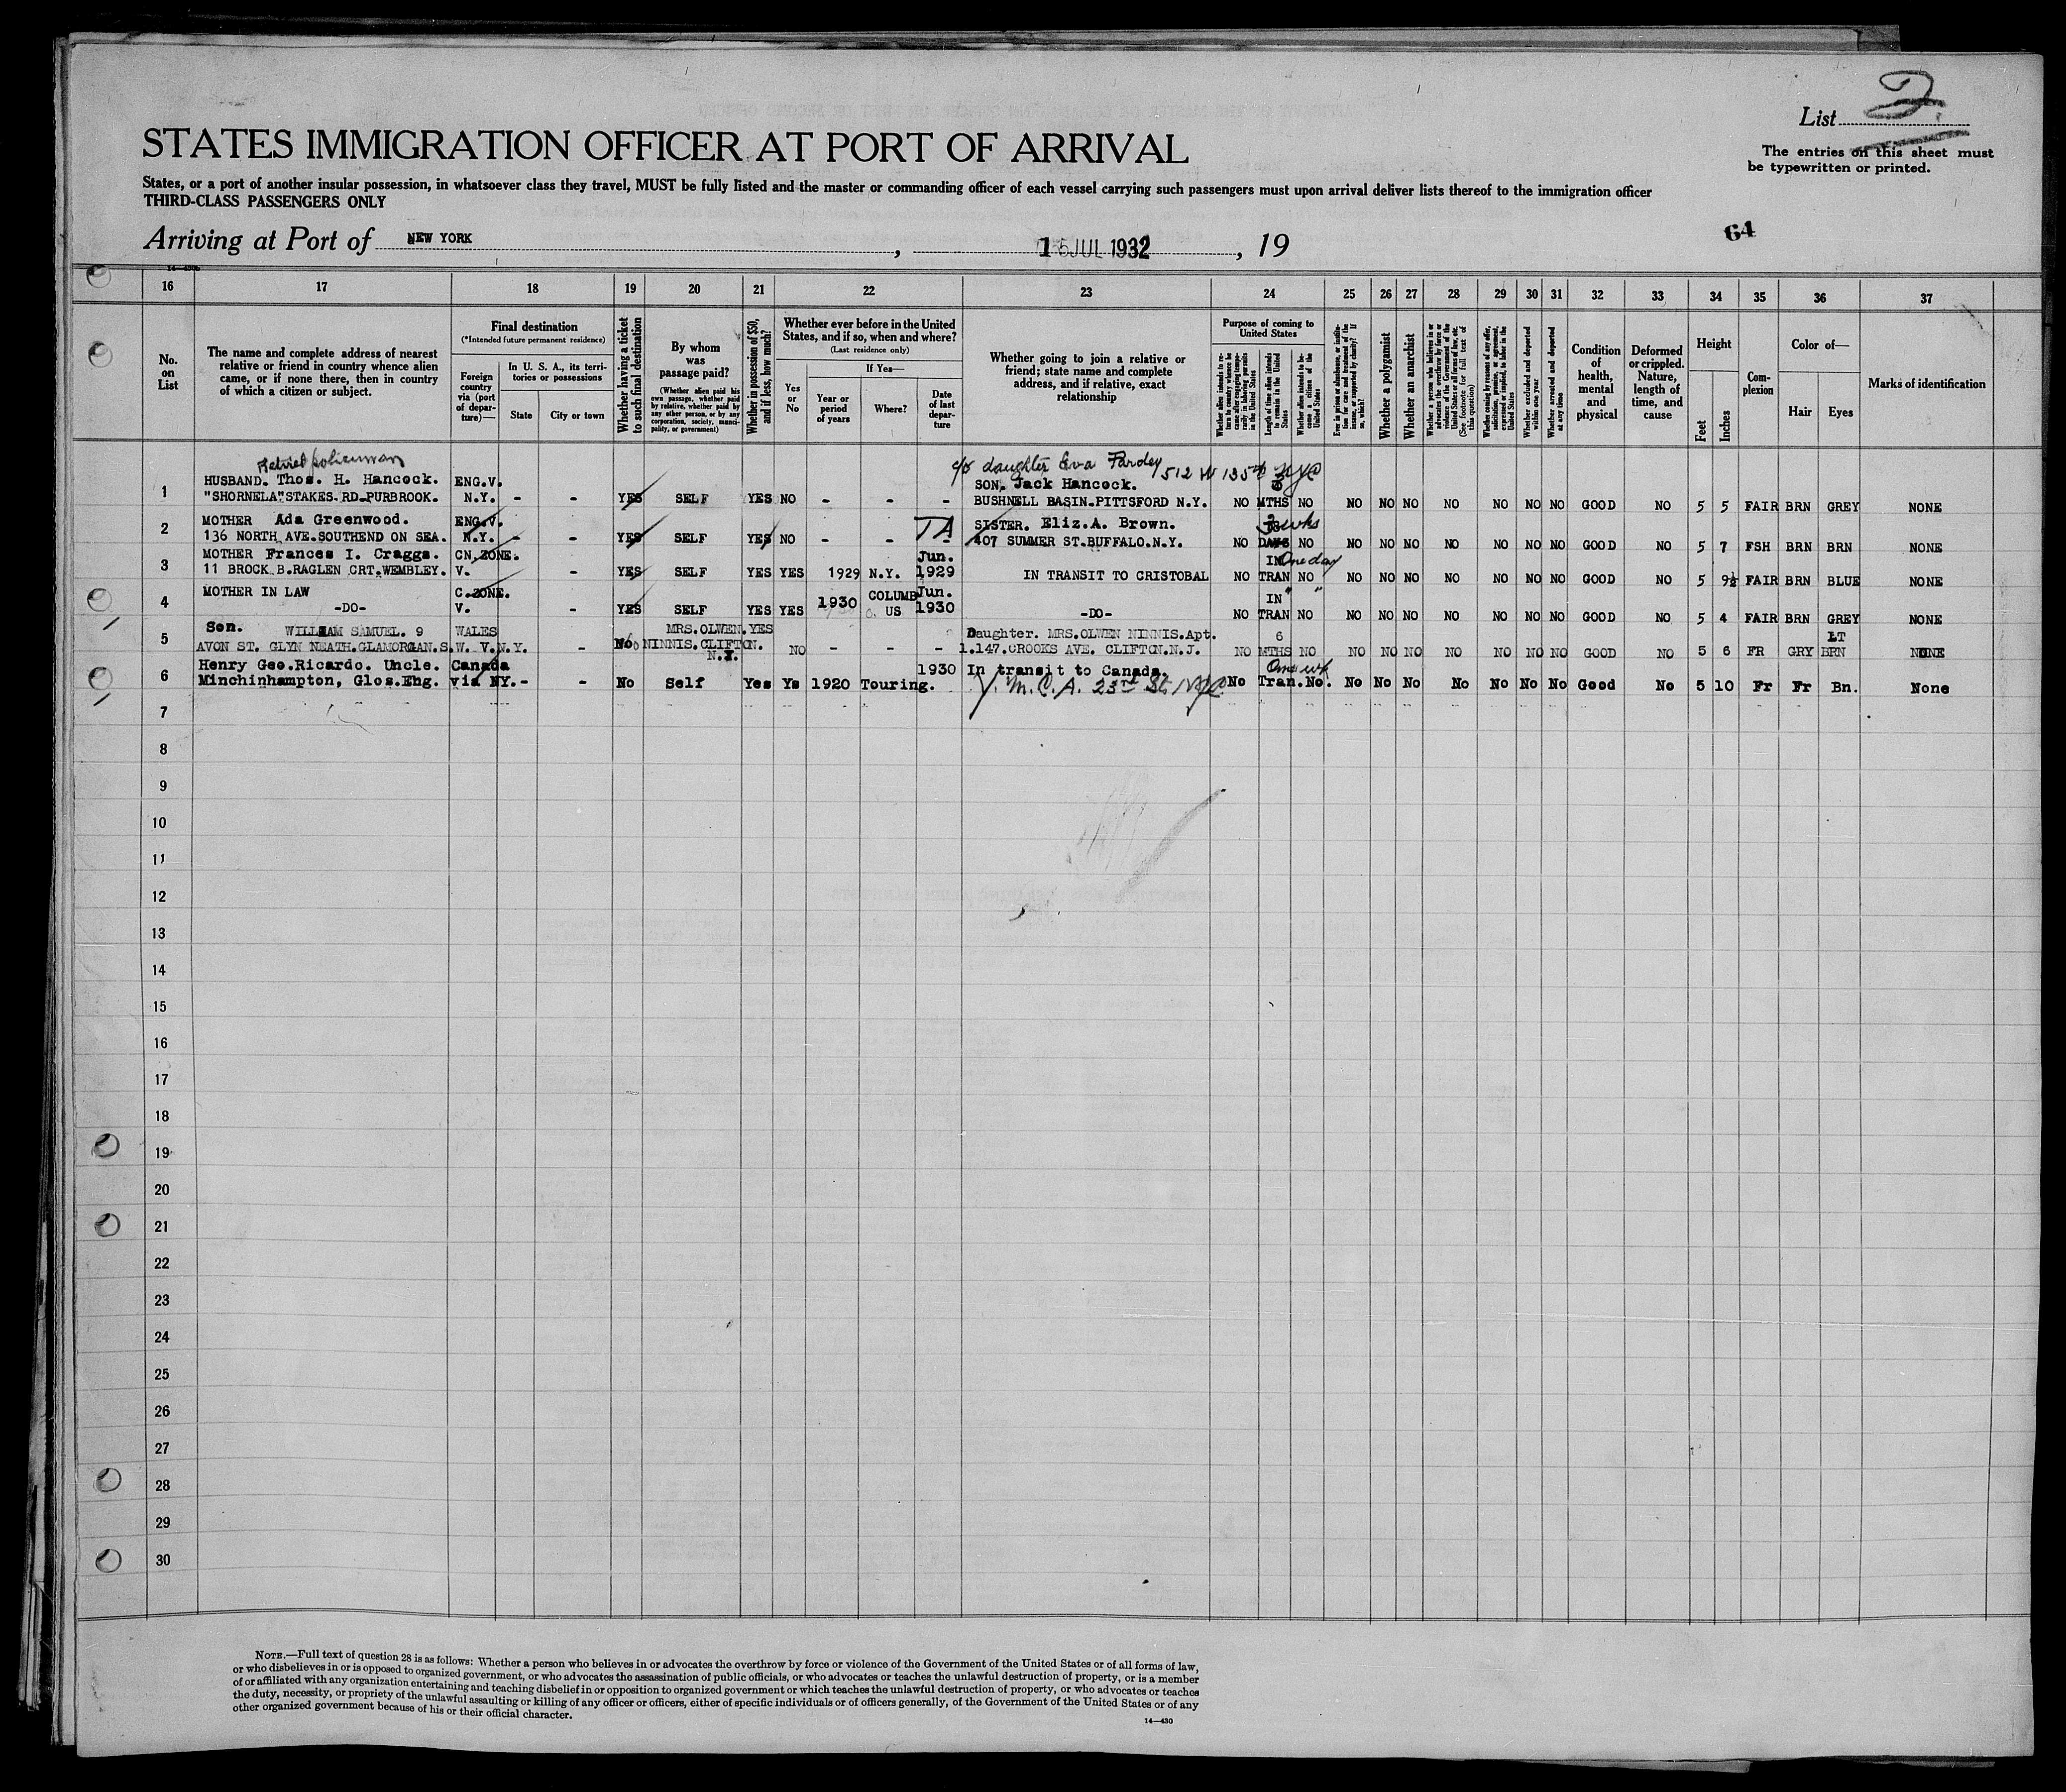 List 2.
STATES IMMIGRATION OFFICER AT PORT OF ARRIVAL
The entries on this sheet must
be typewritten or printed.
States, or a port of another insular possession, in whatsoever class they travel, MUST be fully listed and the master or commanding officer of each vessel carrying such passengers must upon arrival deliver lists thereof to the immigration officer
THIRD-CLASS PASSENGERS ONLY
Arriving at Port of NEW YORK, 15 JUL 1932, 19
64
16 17 18 19 20 21 22 23 24 25 26 27 28 29 30 31 32 33 34 35 36 37
No. on List
The name and complete address of nearest relative or friend in country whence alien came, or if none there, then in country of which a citizen or subject.
Final destination
(*Intended future permanent residence)
Foreign country via (port of departure)—
In U. S. A., its territories or possessions
State
City or town
Whether having a ticket to such final destination
By whom was passage paid?
(Whether alien paid his own passage, whether paid by relative, whether paid by any other person, or by any corporation, society, municipality, or government)
Whether in possession of $50, and if less, how much?
Whether ever before in the United States, and if so, when and where?
(Last residence only)
Yes or No
If Yes—
Year or period of years
Where?
Date of last departure
Whether going to join a relative or friend; state name and complete address, and if relative, exact relationship
Purpose of coming to United States
Whether alien intends to return to country whence he came after engaging temporarily in laboring pursuits in the United States
Length of time alien intends to remain in the United States
Whether alien intends to become a citizen of the United States
Ever in prison or almshouse, or institution for care and treatment of the insane, or supported by charity? If so, which?
Whether a polygamist
Whether an anarchist
Whether a person who believes in or advocates the overthrow by force or violence of the Government of the United States or all forms of law, etc. (See footnote for full text of this question)
Whether coming by reason of any offer, solicitation, promise, or agreement, expressed or implied, to labor in the United States
Whether excluded and deported within one year
Whether arrested and deported at any time
Condition of health, mental and physical
Deformed or crippled. Nature, length of time, and cause
Height
Feet
Inches
Complexion
Color of—
Hair
Eyes
Marks of identification
Retired policeman
c/o daughter Eva Pardey 512 W 135th NYC
HUSBAND. Thos. H. Hancock. ENG.V. SON. Jack Hancock. 6
1 "SHORNELA" STAKES RD PURBROOK. N.Y. - - YES SELF YES NO - - - BUSHNELL BASIN PITTSFORD N.Y. NO MTHS NO NO NO NO NO NO NO NO GOOD NO 5 5 FAIR BRN GREY NONE
MOTHER Ada Greenwood. ENG.V. TA SISTER. Eliz.A. Brown. 3 wks
2 136 NORTH AVE. SOUTHEND ON SEA. N.Y. - - YES SELF YES NO - - - 407 SUMMER ST. BUFFALO.N.Y. NO DAYS NO NO NO NO NO NO NO NO GOOD NO 5 7 FSH BRN BRN NONE
MOTHER Frances I. Craggs. CN.ZONE. Jun. IN One day
3 11 BROCK B.RAGLEN CRT.WEMBLEY. V. - YES SELF YES YES 1929 N.Y. 1929 IN TRANSIT TO CRISTOBAL NO TRAN NO NO NO NO NO NO NO NO GOOD NO 5 9½ FAIR BRN BLUE NONE
MOTHER IN LAW C.ZONE. COLUMB Jun. IN " "
4 -DO- V. - YES SELF YES YES 1930 US 1930 -DO- NO TRAN NO NO NO NO NO NO NO NO GOOD NO 5 4 FAIR BRN GREY NONE
Son. WILLIAM SAMUEL. 9 WALES MRS.OLWEN. YES Daughter. MRS.OLWEN NINNIS.Apt. 6 LT
5 AVON ST. GLYN NEATH.GLAMORGAN.S.W. V.N.Y. - No NINNIS.CLIFTON. N.J. NO - - - 1.147.CROOKS AVE. CLIFTON.N.J. NO MTHS NO NO NO NO NO NO NO NO GOOD NO 5 6 FR GRY BRN NONE
Henry Geo.Ricardo. Uncle. Canada 1930 In transit to Canada. One wk
6 Minchinhampton, Glos.Eng. via NY. - - No Self Yes Ys 1920 Touring. Y.M.C.A. 23rd St. NYC No Tran. No. No No No No No No No Good No 5 10 Fr Fr Bn. None
7
8
9
10
11
12
13
14
15
16
17
18
19
20
21
22
23
24
25
26
27
28
29
30
NOTE.—Full text of question 28 is as follows: Whether a person who believes in or advocates the overthrow by force or violence of the Government of the United States or of all forms of law,
or who disbelieves in or is opposed to organized government, or who advocates the assassination of public officials, or who advocates or teaches the unlawful destruction of property, or is a member
of or affiliated with any organization entertaining and teaching disbelief in or opposition to organized government or which teaches the unlawful destruction of property, or who advocates or teaches
the duty, necessity, or propriety of the unlawful assaulting or killing of any officer or officers, either of specific individuals or of officers generally, of the Government of the United States or of any
other organized government because of his or their official character.
14—430